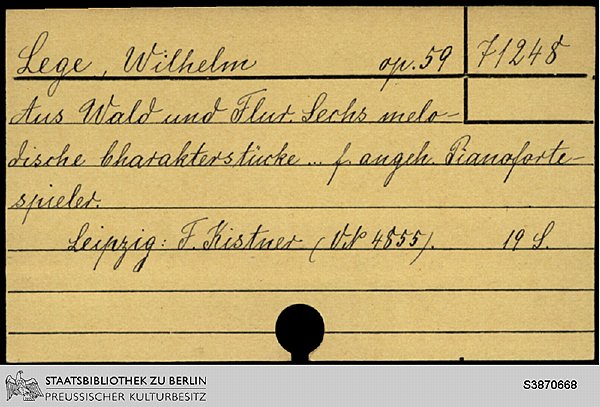 Lege, Wilhelm op. 59 71248
Aus Wald und Flur. Sechs melo-
dische Charakterstücke ... f. angeh. Pianoforte-
spieler.
Leipzig: F. Kistner (VN 4855). 19 S.
STAATSBIBLIOTHEK ZU BERLIN
PREUSSISCHER KULTURBESITZ
S3870668